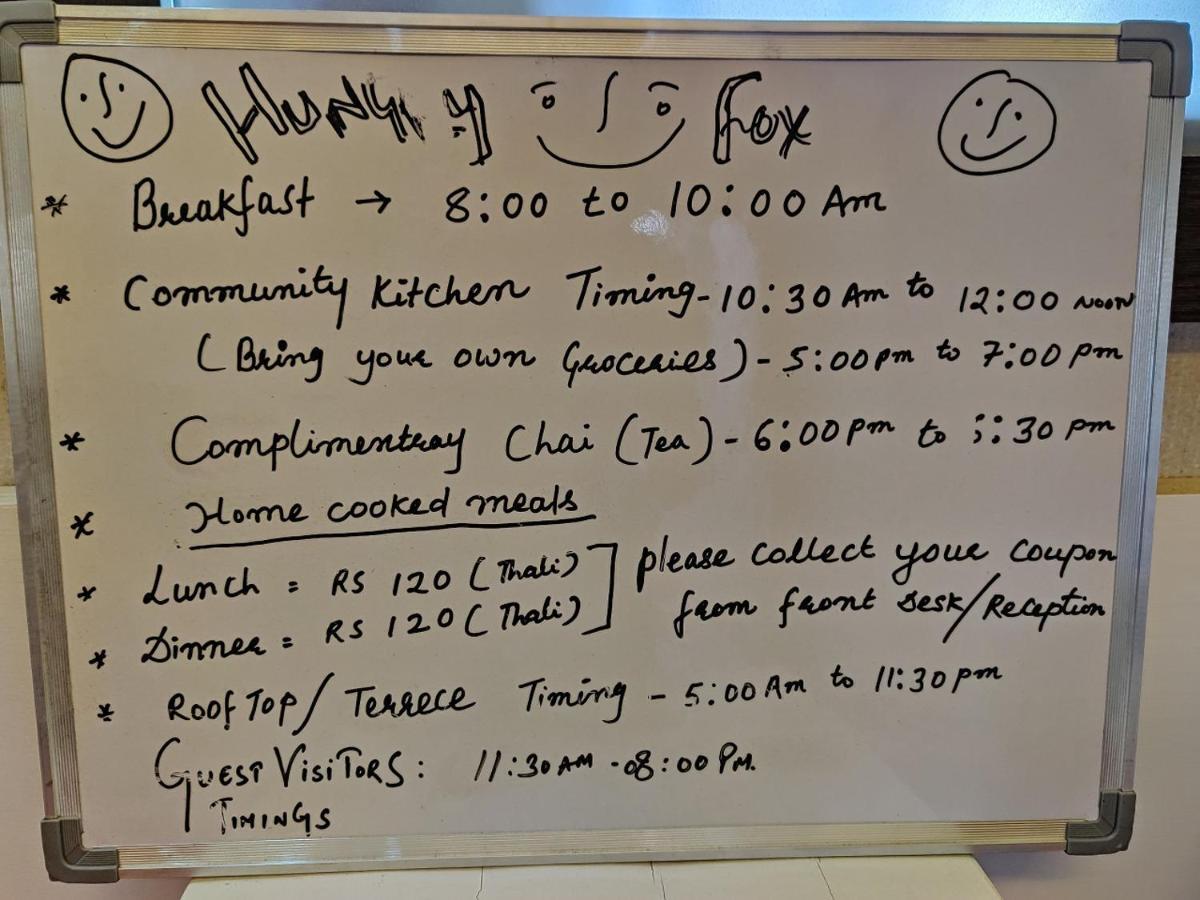 HuNGry Fox
* Breakfast → 8:00 to 10:00 Am
* Community Kitchen Timing - 10:30 Am to 12:00 NOON
(Bring your own Groceries) - 5:00 pm to 7:00 pm
* Complimentray Chai (Tea) - 6:00 pm to :30 pm
* Home cooked meals
* Lunch = RS 120 (Thali) ] please collect your coupon
* Dinner = RS 120 (Thali) from front desk/Reception
* Roof Top/ Terrece Timing - 5:00 Am to 11:30 pm
GUEST VISITORS: 11:30 AM - 08:00 PM.
TIMINGS